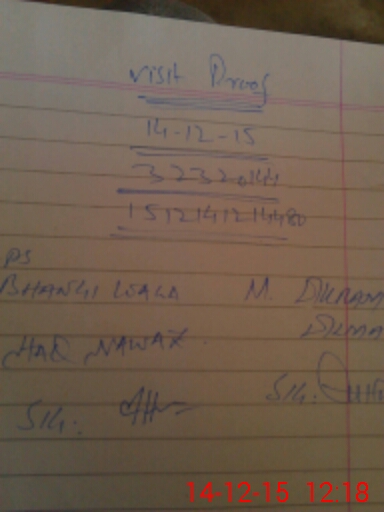 visit Proof
14-12-15
3232044
1512141214480
PS
BHANGI WALA M. IKRAM
HAQ NAWAZ
SIG. SIG.
14-12-15 12:18